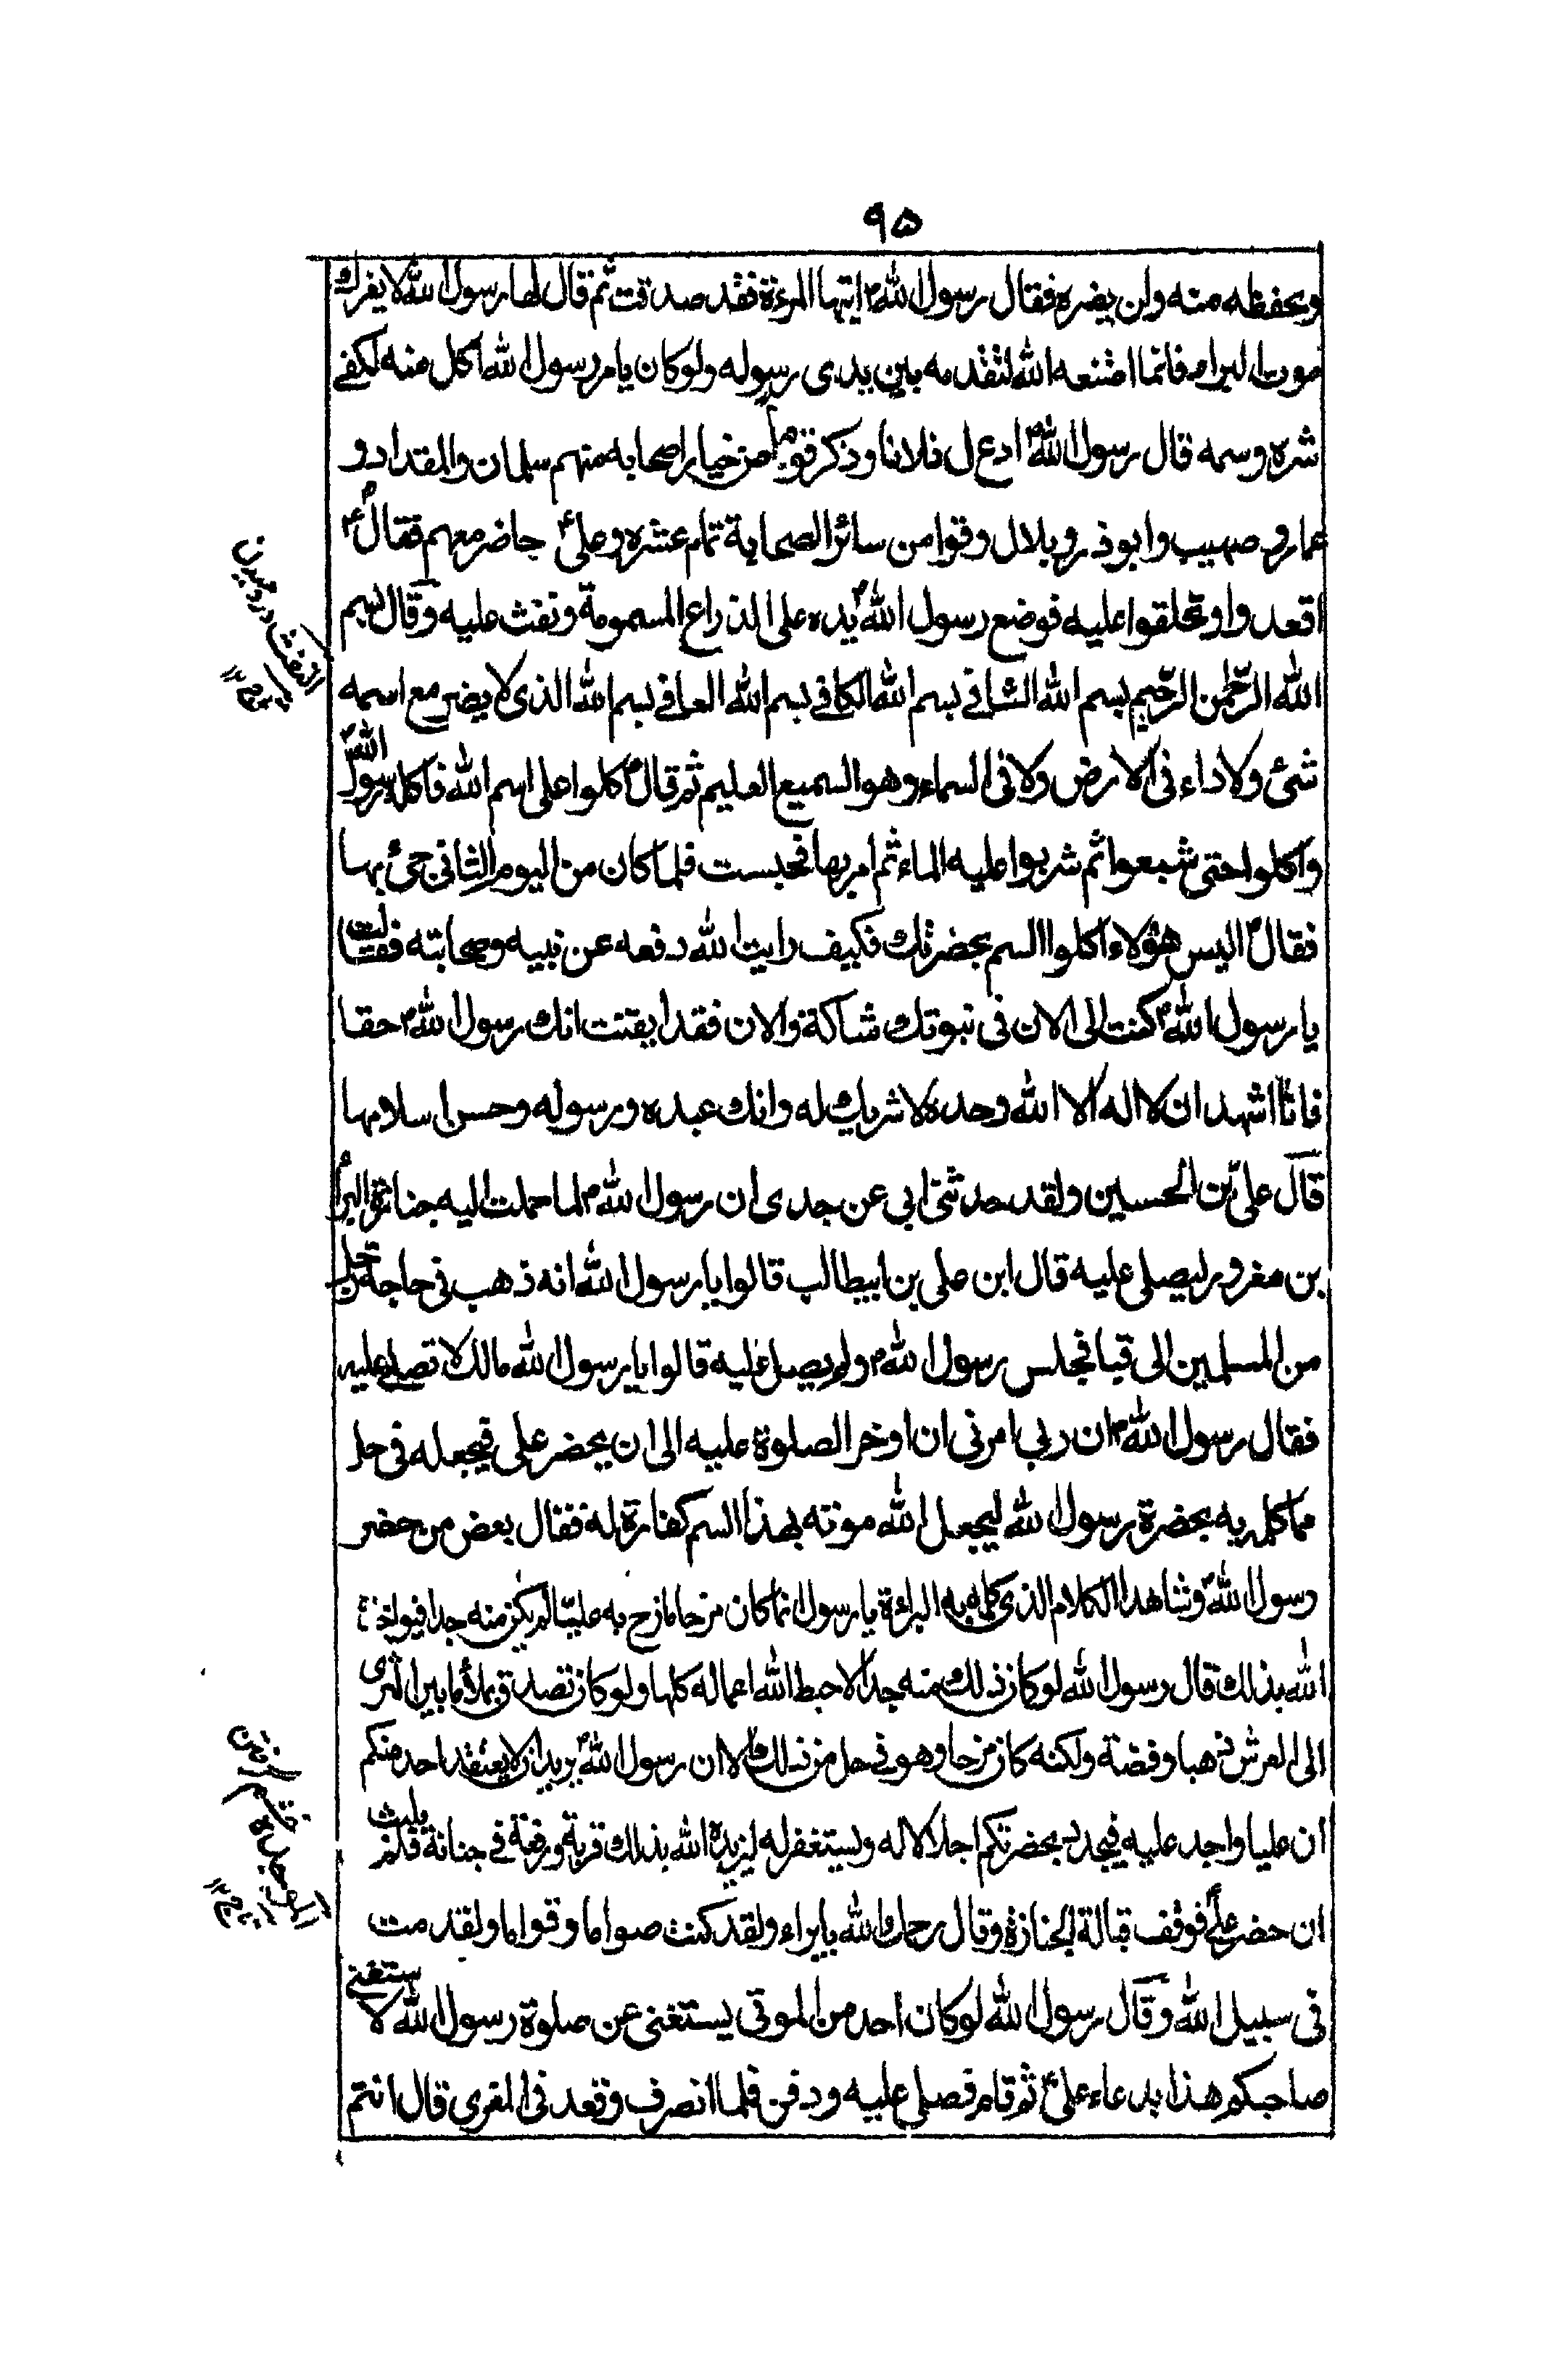 ٩٥
ويحفظه منه ولن يضره فقال رسول اللهم ايتها المرءة فقد صدقت ثم قال لها رسول الله لا يغرك
موت البراء فانما امتنعه الله لتقدمه بين يدى رسوله ولو كان يامر رسول الله اكل منه لكفى
شره وسمه قال رسول اللهم ادع ل فلانا وذكر قوما من خيار اصحابه منهم سلمان والمقداد و
عمار وصهيب وابوذر وبلال وقوا من سائر الصحابة تمام عشره وعلىع حاضر معهم فقال ع
اقعدوا وتحلقوا عليه فوضع رسول اللهم يده على الذراع المسمومة ونفث عليه وقال بسم
الله الرحمن الرحيم بسم الله الشافى بسم الله الكافى بسم الله المعافى بسم الله الذى لا يضر مع اسمه
شئ ولا داء فى الارض ولا فى السماء وهو السميع العليم ثم قال كلوا على اسم الله فاكل رسول الله
واكلوا حتى شبعوا ثم شربوا عليه الماء ثم امر بها فحبست فلما كان من اليوم الثانى جئ بها
فقال اليس هؤلاء اكلوا السم بحضرتك فكيف رايت الله دفعه عن نبيه وصحابته فقالت
يا رسول اللهم كنت الى الان فى نبوتك شاكة والان فقد ايقنت انك رسول اللهم حقا
فانا اشهد ان لا اله الا الله وحده لا شريك له وانك عبده ورسوله وحسن اسلامها
قال على بن الحسين ولقد حدثنى ابى عن جدى ان رسول اللهم لما حملت اليه جنازة البراء
بن معرور ليصلى عليه قال اين على بن ابيطالب قالوا يا رسول الله انه ذهب فى حاجة رجل
من المسلمين الى قبا فجلس رسول اللهم ولم يصل عليه قالوا يا رسول الله مالك لا تصلى عليه
فقال رسول اللهم ان ربى امرنى ان اوخر الصلوة عليه الى ان يحضر على فيجعله فى حل
مما كلم به بحضرة رسول الله ليجعل الله موته بهذا السم كفارة له فقال بعض من حضر
رسول اللهم وشاهد الكلام الذى كلمه به البراءة يا رسول انما كان مزحا مازح به عليا لم يكن منه جدا فيواخذه
الله بذلك قال رسول الله لو كان ذلك منه جدا لاحبط الله اعماله كلها ولو كان تصدق بملأ ما بين الثرى
الى العرش ذهبا وفضة ولكنه كان مزحا وهو فى حل من ذلك الا ان رسول اللهم يريد ان لا يعتقد احد منكم
ان عليا واجد عليه فيجدد بحضرتكم اجلالا له ويستغفر له ليزيده الله بذلك قربة ورفعة فى جنانة فلم يلبث
ان حضر على فوقف قبالة الجنازة وقال رحمك الله يا براء ولقد كنت صواما وقواما ولقد مت
فى سبيل الله وقال رسول الله لو كان احد من الموتى يستغنى عن صلوة رسول الله لاستغنى
صاحبكم هذا بدعاء علىع ثم قام فصلى عليه ودفن فلما انصرف وقعد فى العزى قال انتم
النفث دردميدن